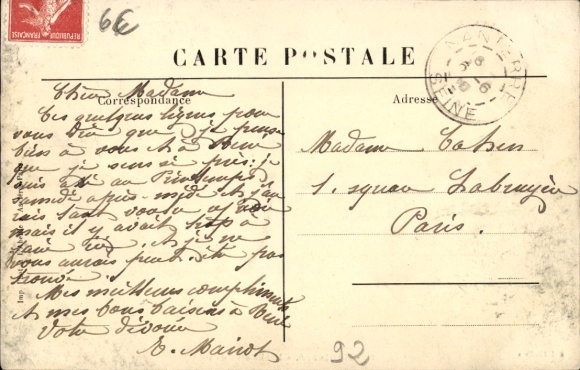 REPUBLIQUE FRANÇAISE
6€
CARTE POSTALE
NANTERRE
SEINE
Correspondance
Adresse
Chère Madame
Ces quelques lignes pour
vous dire que je pense
bien à vous et à
que je sens si près. Je
suis allé au Printemps
samedi après-midi et j'au
rais tant voulu
mais il y avait trop à
faire et je ne
vous aurais peut-être pas
trouvée
Mes meilleurs compliments
et mes bons baisers à
Votre dévouée
E. Mairot
Madame Cahen
1. square Labruyère
Paris.
Imp.
92